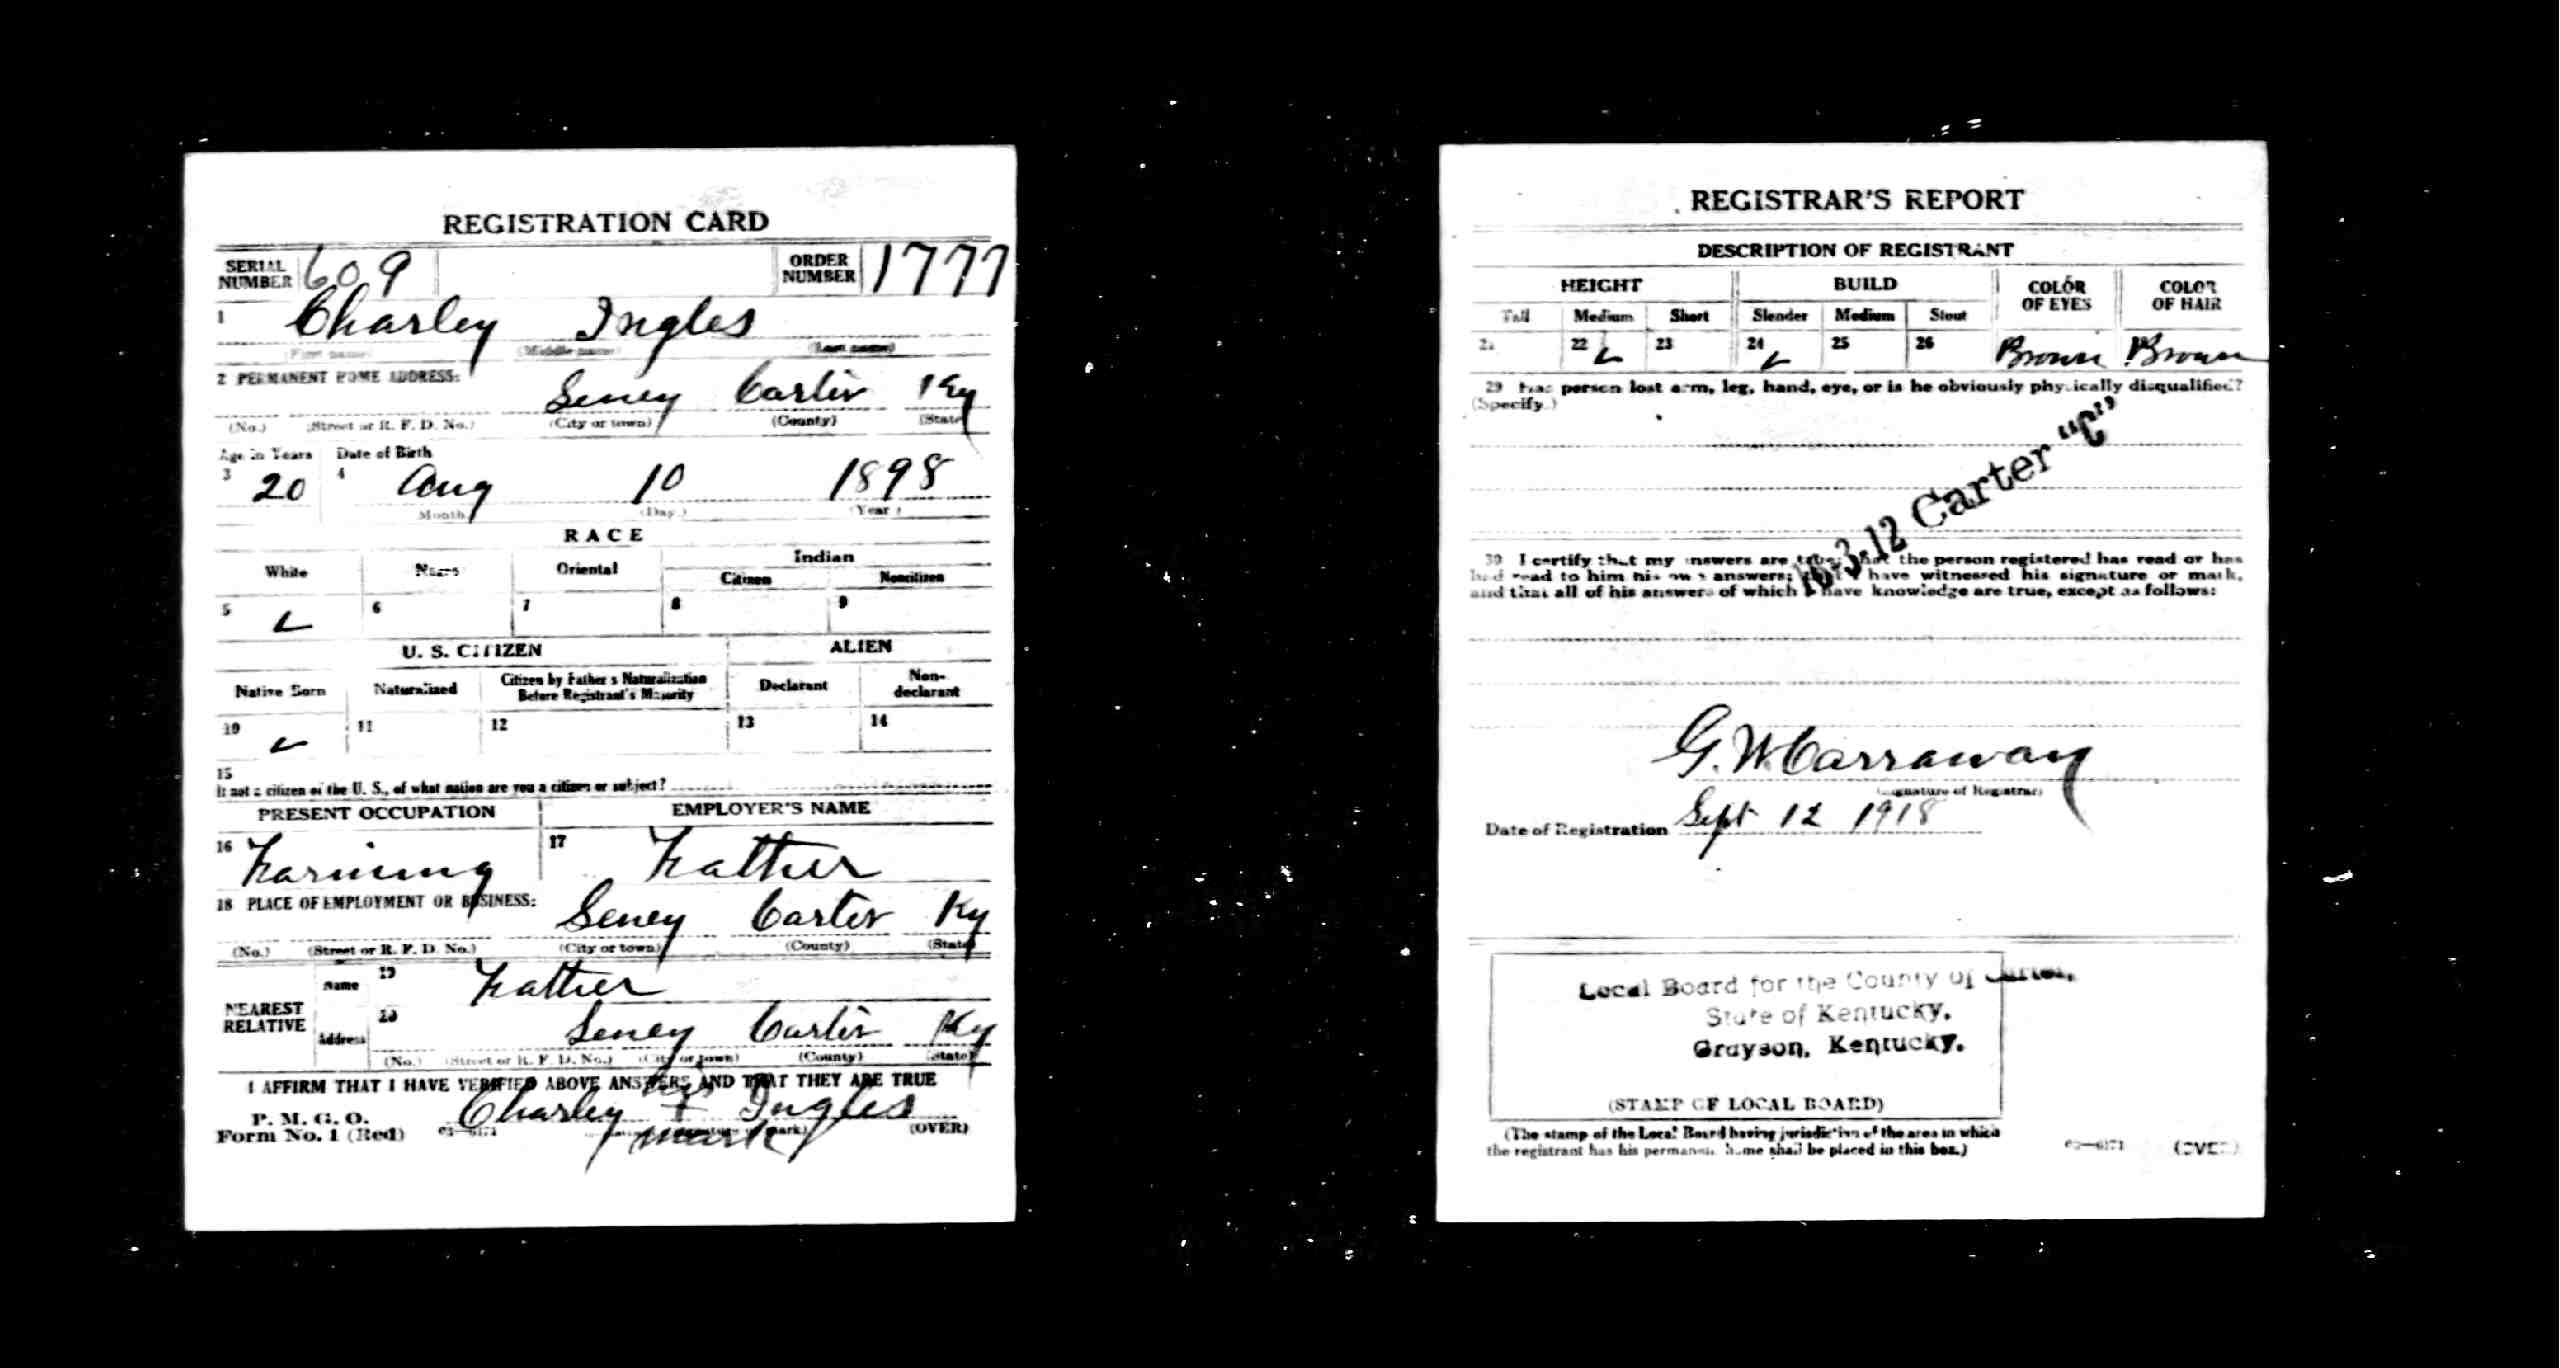 REGISTRATION CARD
SERIAL NUMBER 609 ORDER NUMBER 1777
1 Charley Ingles
(First name) (Middle name) (Last name)
2 PERMANENT HOME ADDRESS:
Seney Carter Ky
(No.) (Street or R. F. D. No.) (City or town) (County) (State)
Age in Years Date of Birth
3 20 4 Aug 10 1898
(Month) (Day) (Year)
RACE
White Negro Oriental Indian
Citizen Noncitizen
5 6 7 8 9
U. S. CITIZEN ALIEN
Native Born Naturalized Citizen by Father's Naturalization Before Registrant's Majority Declarant Non-declarant
10 11 12 13 14
15
If not a citizen of the U. S., of what nation are you a citizen or subject?
PRESENT OCCUPATION EMPLOYER'S NAME
16 Farming 17 Father
18 PLACE OF EMPLOYMENT OR BUSINESS:
Seney Carter Ky
(No.) (Street or R. F. D. No.) (City or town) (County) (State)
NEAREST RELATIVE Name 19 Father
Address 20 Seney Carter Ky
(No.) (Street or R. F. D. No.) (City or town) (County) (State)
I AFFIRM THAT I HAVE VERIFIED ABOVE ANSWERS AND THAT THEY ARE TRUE
his
P. M. G. O. Charley + Ingles
Form No. 1 (Red) 03—6171 mark (OVER)
REGISTRAR'S REPORT
DESCRIPTION OF REGISTRANT
HEIGHT BUILD COLOR OF EYES COLOR OF HAIR
Tall Medium Short Slender Medium Stout
21 22 23 24 25 26 Brown Brown
29 Has person lost arm, leg, hand, eye, or is he obviously physically disqualified?
(Specify.)
16-3-12 Carter "C"
30 I certify that my answers are true; that the person registered has read or has
had read to him his own answers; that I have witnessed his signature or mark,
and that all of his answers of which I have knowledge are true, except as follows:
G. W. Carraway
(Signature of Registrar)
Date of Registration Sept 12 1918
Local Board for the County of Carter,
State of Kentucky.
Grayson, Kentucky.
(STAMP OF LOCAL BOARD)
(The stamp of the Local Board having jurisdiction of the area in which
the registrant has his permanent home shall be placed in this box.)
03—6171 (OVER)